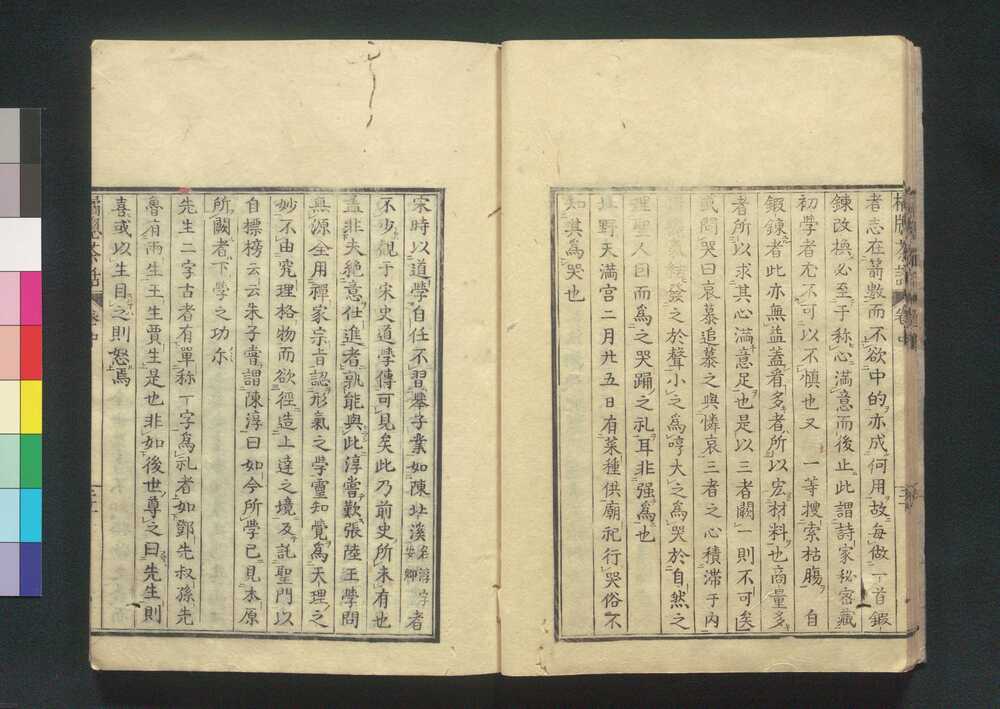 者志在箭數而不欲中的亦成何用故每做一首鍛
鍊改換必至于称心滿意而後止此謂詩家秘密藏
初學者尤不可以不慎也又一等搜索枯腸自
鍛鍊者此亦無益蓋看多者所以宏材料也商量多
者所以求其心滿意足也是以三者闕一則不可矣
或問哭曰哀慕追慕之與憐哀三者之心積滯于內
發之於聲小之為哼大之為哭於自然之
理聖人因而為之哭踊之礼耳非强為也
北野天滿宮二月廿五日有菜種供廟祀行哭俗不
知其為哭也
宋時以道學自任不習舉子業如陳北溪名淳字安卿者
不少觀于宋史道學傳可見矣此乃前史所未有也
蓋非夫絶意仕進者孰能與此淳嘗歎張陸王學問
無源全用禪家宗旨認形氣之學靈知覺為天理之
妙不由究理格物而欲徑造上達之境及託聖門以
自標榜云云朱子嘗謂陳淳曰如今所學已見本原
所闕者下學之功尓
先生二字古者有單称一字為礼者如鄧先叔孫先
魯有兩生王生賈生是也非如後世尊之曰先生則
喜或以生目之則怒焉